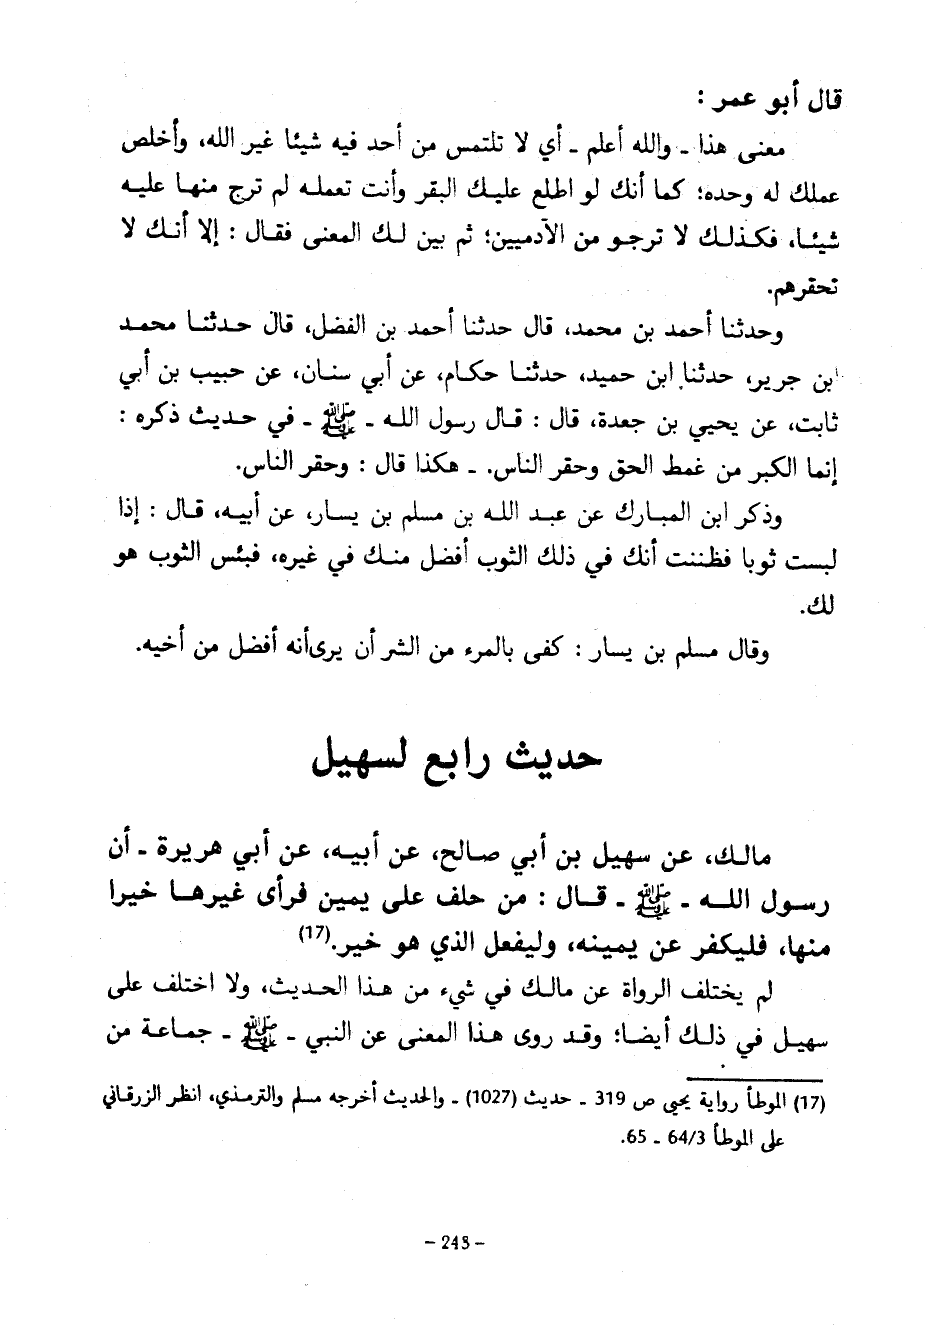 قال أبو عمر :
معنى هذا ـ والله أعلم ـ أي لا تلتمس من أحد فيه شيئا غير الله، وأخلص
عملك له وحده؛ كما أنك لو اطلع عليك البقر وأنت تعمله لم ترج منها عليه
شيئا، فكذلك لا ترجو من الآدميين؛ ثم بين لك المعنى فقال : إلا أنك لا
تحقرهم.
وحدثنا أحمد بن محمد، قال حدثنا أحمد بن الفضل، قال حدثنا محمد
ابن جرير، حدثنا ابن حميد، حدثنا حكام، عن أبي سنان، عن حبيب بن أبي
ثابت، عن يحيي بن جعدة، قال : قال رسول الله ـ ﷺ ـ في حديث ذكره :
إنما الكبر من غمط الحق وحقر الناس. ـ هكذا قال : وحقر الناس.
وذكر ابن المبارك عن عبد الله بن مسلم بن يسار، عن أبيه، قال : إذا
لبست ثوبا فظننت أنك في ذلك الثوب أفضل منك في غيره، فبئس الثوب هو
لك.
وقال مسلم بن يسار : كفى بالمرء من الشر أن يرى أنه أفضل من أخيه.
حديث رابع لسهيل
مالك، عن سهيل بن أبي صالح، عن أبيه، عن أبي هريرة ـ أن
رسول الله ـ ﷺ ـ قال : من حلف على يمين فرأى غيرها خيرا
منها، فليكفر عن يمينه، وليفعل الذي هو خير.(17)
لم يختلف الرواة عن مالك في شيء من هذا الحديث، ولا اختلف على
سهيل في ذلك أيضا؛ وقد روى هذا المعنى عن النبي ـ ﷺ ـ جماعة من
(17) الموطأ رواية يحيى ص 319 ـ حديث (1027) ـ والحديث أخرجه مسلم والترمذي، انظر الزرقاني
على الموطأ 64/3 ـ 65.
– 243 –